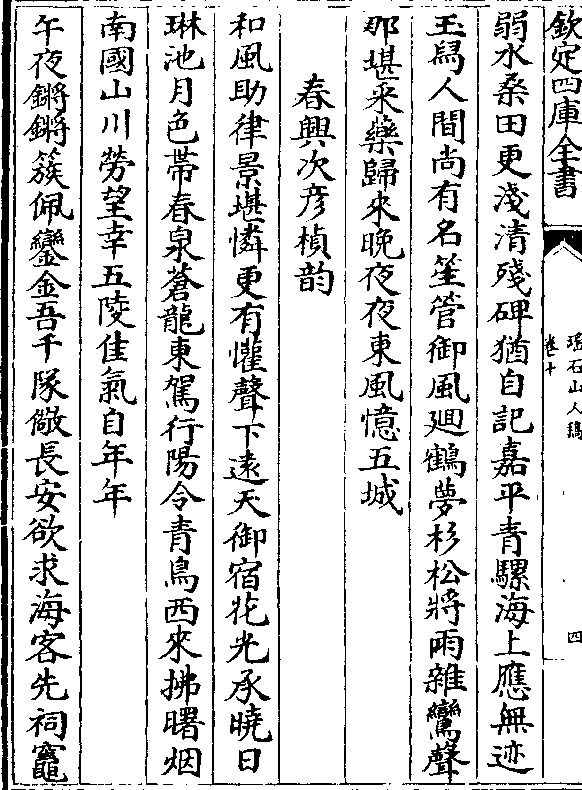 欽定四庫全書
瑤石山人稿
卷十
四
弱水桑田更淺清殘碑猶自記嘉平青騾海上應無迹
玉舄人間尚有名笙管御風迴鶴夢杉松將雨雜鸞聲
那堪采藥歸來晚夜夜東風憶五城
春興次彦楨韵
和風助律景堪憐更有懽聲下遠天御宿花光承曉日
琳池月色帶春泉蒼龍東駕行陽令青鳥西來拂曙烟
南國山川勞望幸五陵佳氣自年年
午夜鏘鏘簇佩鑾金吾千隊儆長安欲求海客先祠竈